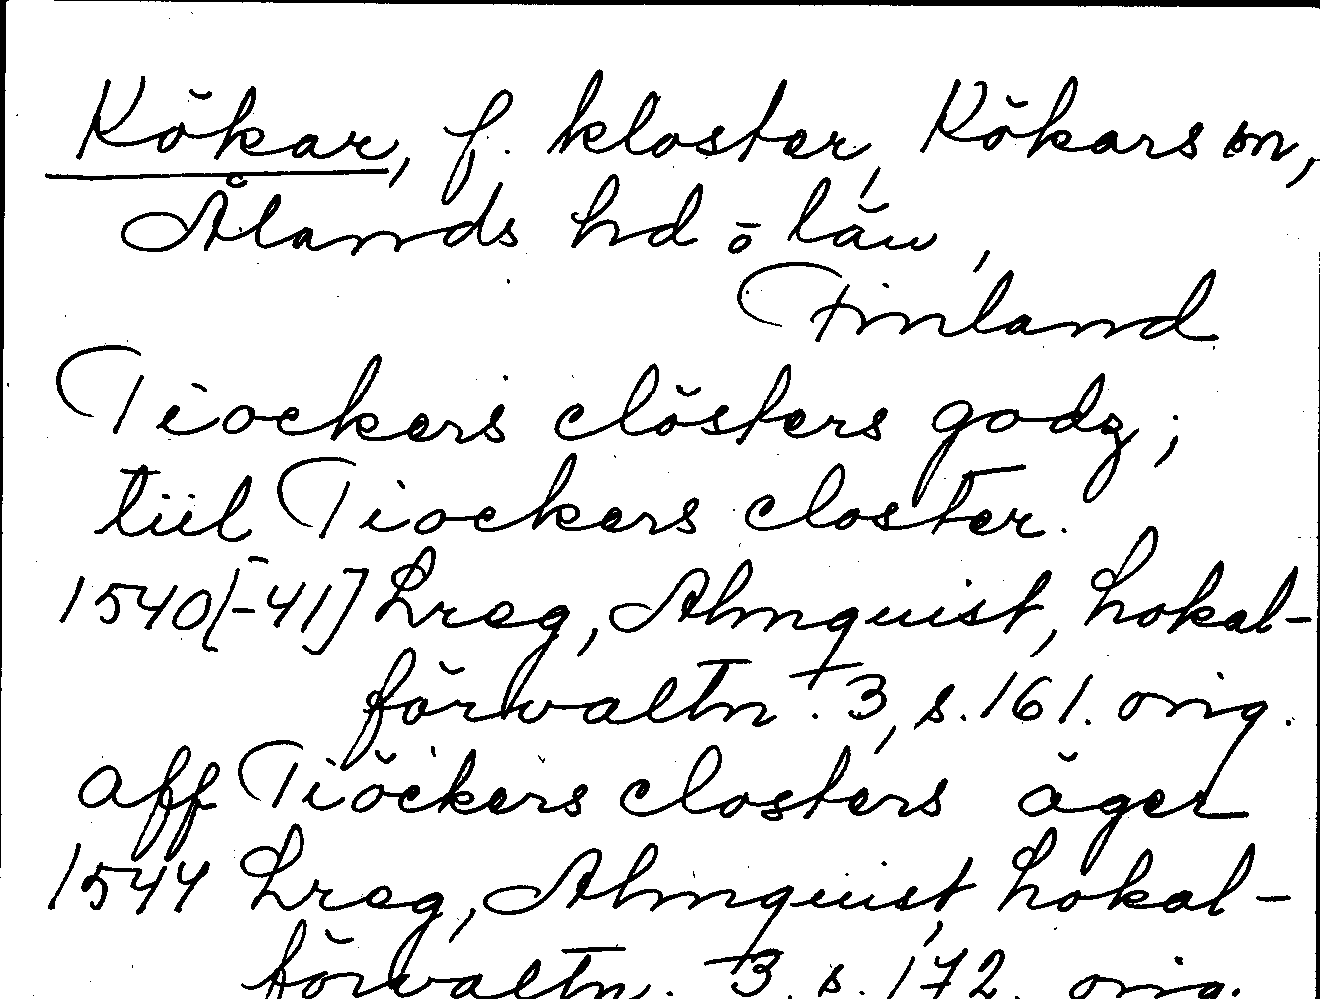 Kökar, f. kloster, Kökars sn,
Ålands hd o län,
Finland
Tiockers clösters godz;
tiil Tiockers closter.
1540[-41] Lreg, Almquist, Lokal-
förvaltn. 3, s. 161. orig.
aff Tiöckers closters äger
1544 Lreg, Almquist, Lokal-
förvaltn. 3. s. 172. orig.